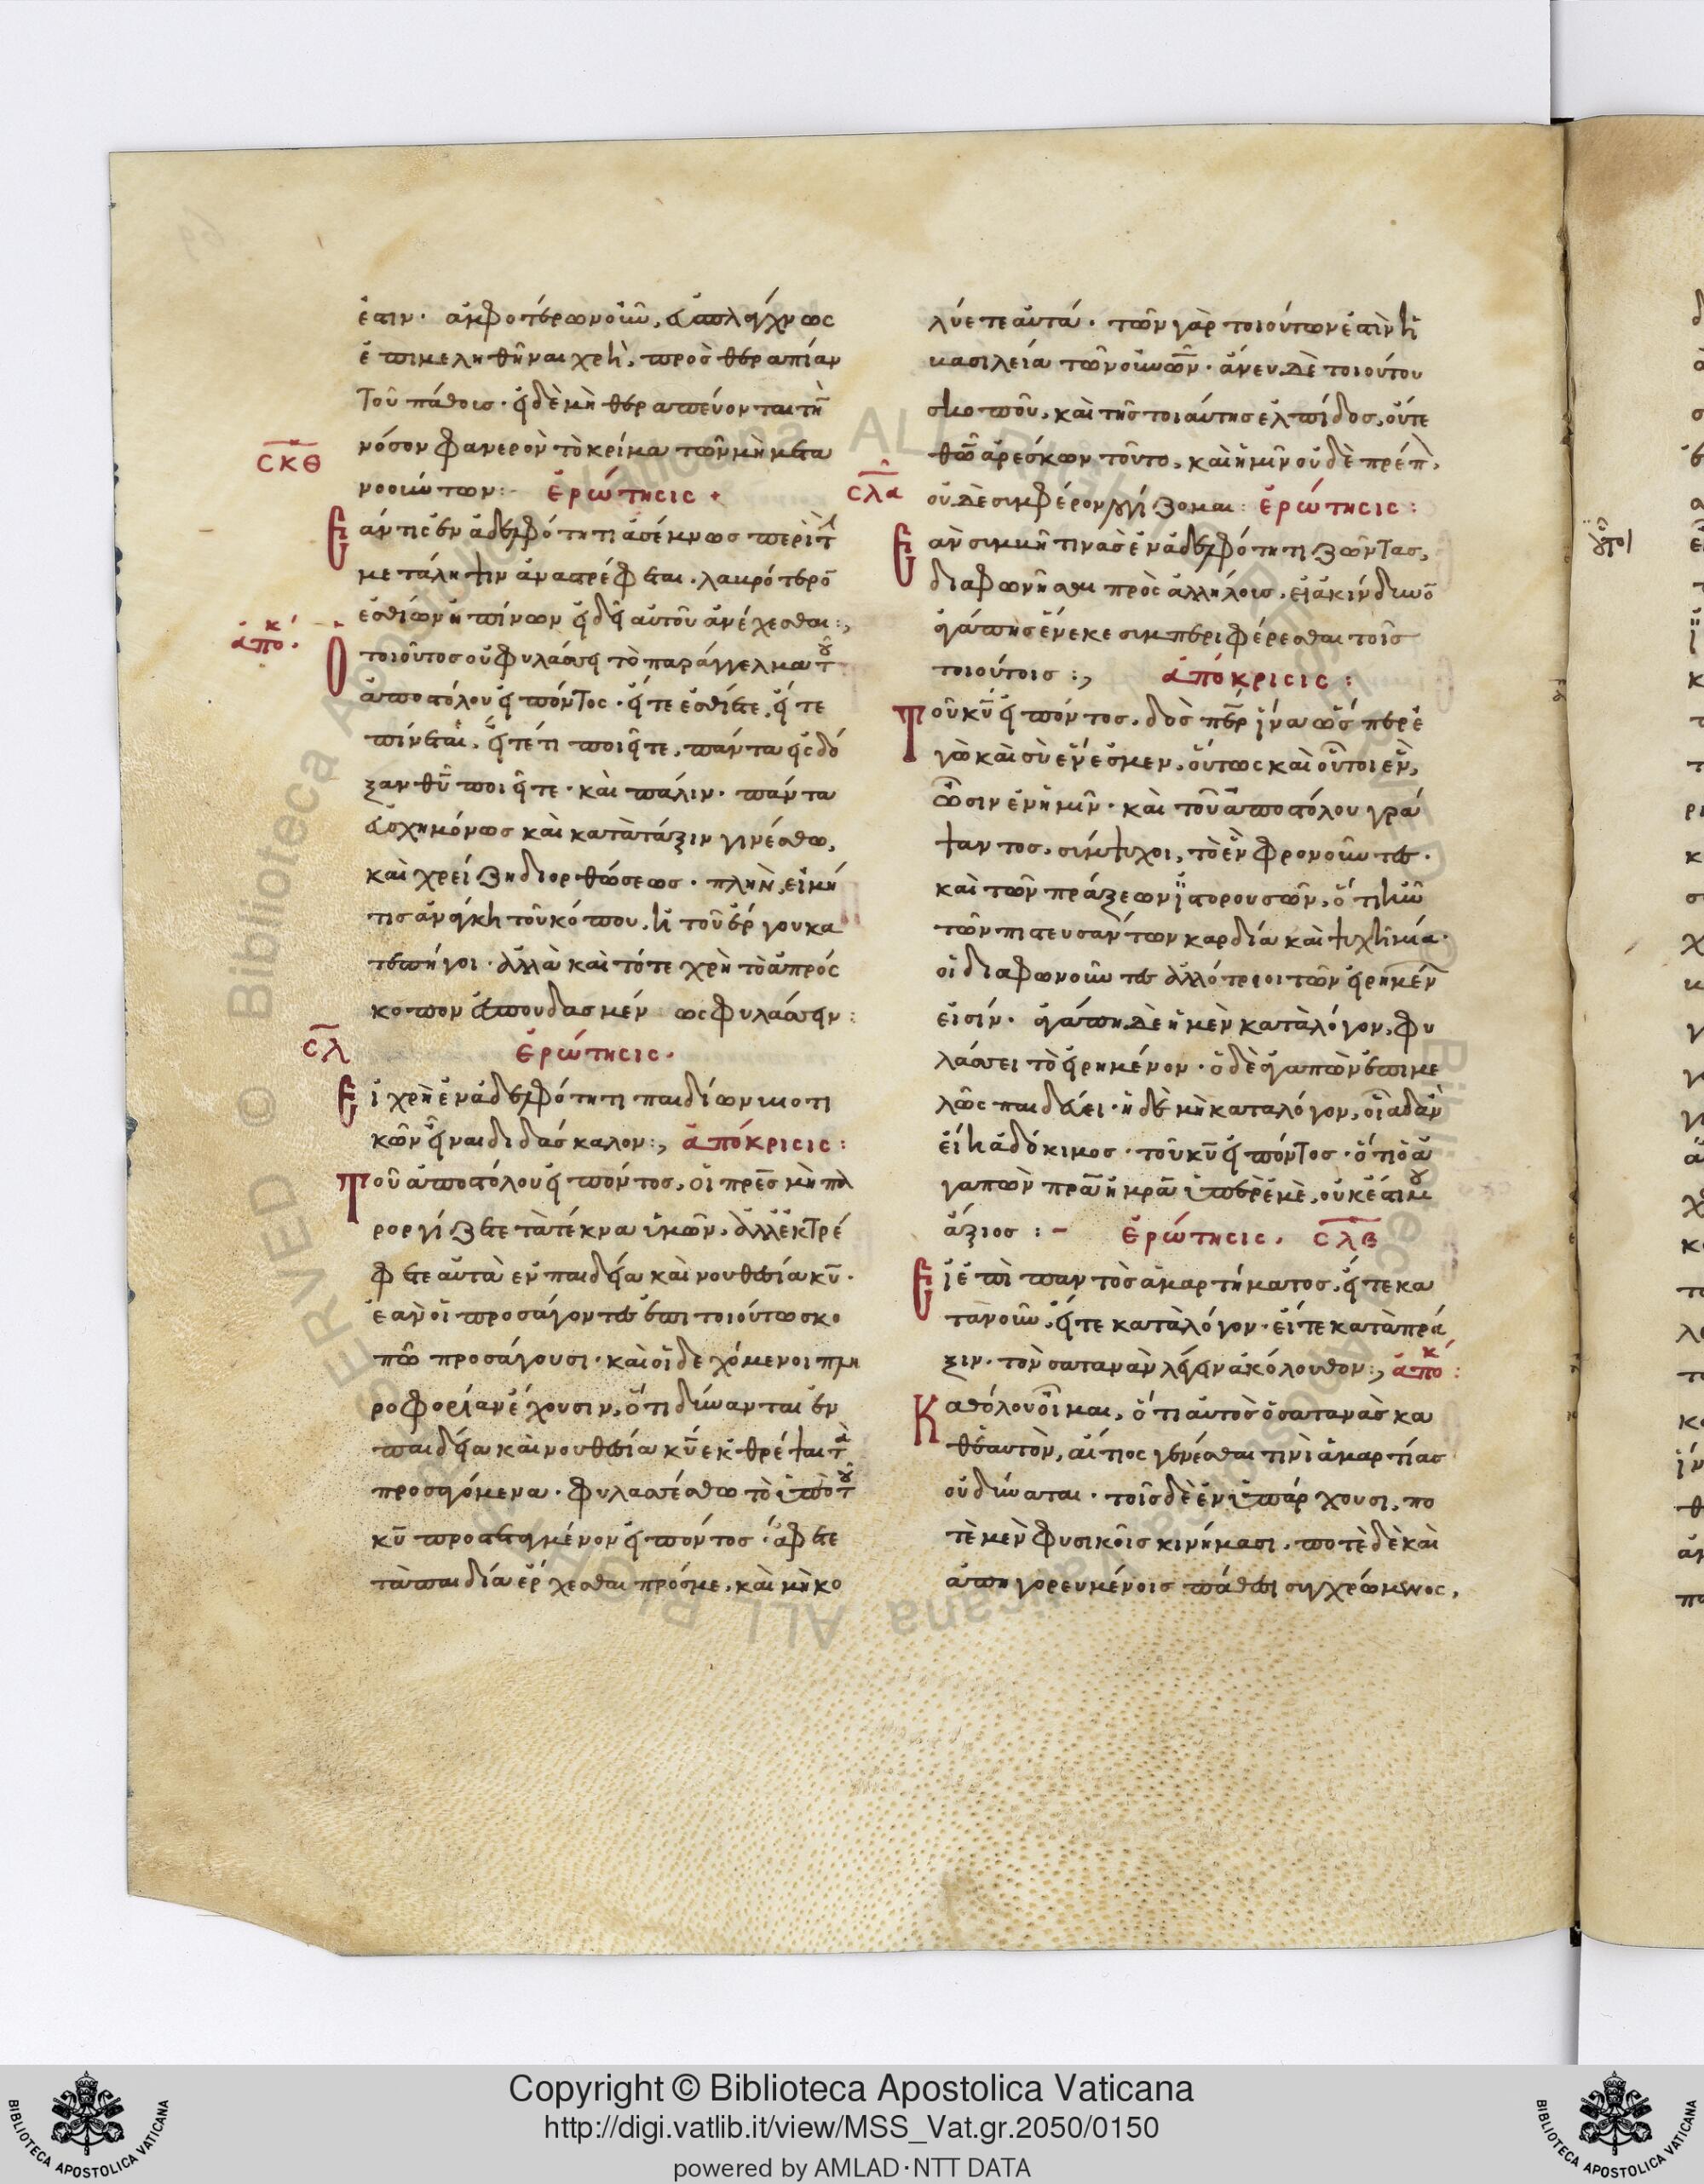 ἐστιν· ἀμφοτέρων οὖν, εὐσπλάγχνως
ἐπιμεληθῆναι χρὴ, πρὸς θεραπίαν
τοῦ πάθους· εἰ δὲ μὴ θεραπεύονται τὴν
ϲκθ
νόσον φανερὸν τὸ κρίμα τῶν μὴ μετα
νοούντων:- ἐρώτησις +
Εάν τις ἐν ἀδελφότητι ἀσέμνως περὶ τ
μετάληψιν ἀναστρέφεται· λαυρότερον
ἐσθίων ἢ πίνων εἰ δεῖ αὐτοῦ ἀνέχεσθαι:,
ἀποκ.
Ὁ τοιοῦτος οὐ φυλάσσει τὸ παράγγελμα τοῦ
ἀποστόλου εἰπόντος· εἴτε ἐσθίετε, εἴτε
πίνεται, εἴτέ τι ποιεῖτε, πάντα εἰς δό
ξαν θῦ ποιεῖτε· καὶ πάλιν· πάντα
εὐσχημόνως καὶ κατὰ τάξιν γινέσθω,
καὶ χρείζη διορθώσεως· πλὴν, εἰ μή
τις ἀνάγκη τοῦ κόπου, ἢ τοῦ ἔργου κα
τεπείγοι· ἀλλὰ καὶ τότε χρὴ τὸ ἀπρόσ
κοπον ἐσπουδασμένως φυλάσσειν:
ϲλ
ἐρώτησις·
Εἰ χρὴ ἐν ἀδελφότητι παιδίων βιοτι
κῶν εἶναι διδάσκαλον:, ἀπόκρισις:
Τοῦ ἀποστόλου εἰπόντος, οἱ πρες μὴ πα
ροργίζετε τὰ τέκνα ὑμῶν, ἀλλ' ἐκτρέ
φετε αὐτὰ ἐν παιδεία καὶ νουθεσία κυ·
ἐὰν οἱ προσάγοντες ἐπι τοιούτω σκο
πῶ προσάγουσι· καὶ οἱ δεχόμενοι πλη
ροφορίαν ἔχουσιν, ὅτι δύνανται ἐν
παιδεία καὶ νουθεσία κυ ἐκθρέψαι τὰ
προσαγόμενα· φυλασσέσθω τὸ ὑπὸ τοῦ
κυ προστεταγμένον εἰπόντος· ἄφετε
τὰ παιδία ἔρχεσθαι πρός με, καὶ μὴ κω
λύετε αὐτά· τῶν γὰρ τοιούτων ἐστὶν ἡ
βασιλεία τῶν οὐνῶν· ἄνευ δὲ τοιούτου
σκοποῦ, καὶ τῆς τοιαύτης ἐλπίδος, οὔτε
θῶ ἀρέσκων τοῦτο, καὶ ἡμῖν οὐδὲ πρέπ,
ϲλα
οὐδὲ συμφέρον λογίζομαι: ἐρώτησις:
Εὰν συμβῆ τινὰς ἐν ἀδελφότητι ζῶντας,
διαφωνῆσαι πρὸς ἀλλήλους, εἰ ἀκίνδυνον
ἀγάπης ἕνεκε συμπεριφέρεσθαι τοῖς
τοιούτοις:, ἀπόκρισις:
Τοῦ κυ εἰπόντος, δὸς περ ἵνα ὥσπερ ἐ
γὼ καὶ σὺ ἕν ἐσμεν, οὕτως καὶ οὗτοι ἓν,
ὦσιν ἐν ἡμῖν· καὶ τοῦ ἀποστόλου γρά
ψαντος, σύμψυχοι, τὸ ἓν φρονοῦντες·
καὶ τῶν πράξεων ἱστορουσῶν, ὅτι ἦν
τῶν πιστευσάντων καρδία καὶ ψυχὴ μία·
οἱ διαφωνοῦντες ἀλλότριοι τῶν εἰρημένων
εἰσίν· ἀγάπη δὲ ἡ μὲν κατὰ λόγον, φυ
λάσσει τὸ εἰρημένον· ὁ δὲ ἀγαπῶν ἐπιμε
λῶς παιδεύει· ἡ δὲ μὴ κατα λόγον, οἵα δ' ἂν
εἴη ἀδόκιμος· τοῦ κυ εἰπόντος· ὅτι ὁ ἀ
γαπῶν πρα ἢ μρα ὑπὲρ ἐμὲ, οὐκ ἔστι μου
ἄξιος:- ἐρώτησις· ϲλβ
Εἰ ἐπὶ παντὸς ἁμαρτήματος, εἴτε κα
τὰ νοῦν, εἴτε κατὰ λόγον· εἴτε κατὰ πρᾶ
ξιν· τὸν σατανὰν λέγειν ἀκόλουθον:, ἀποκ:
Καθόλου οἶμαι, ὅτι αὐτὸς ὁ σατανᾶς κα
θ' ἑαυτὸν, αἴτιος γενέσθαι τινὶ ἁμαρτίας
οὐ δύναται· τοῖς δὲ ἐνυπάρχουσι, πο
τὲ μὲν φυσικοῖς κινήμασι, ποτὲ δὲ καὶ
ἀπηγορευμένοις πάθεσι συγχρώμενος,
Copyright © Biblioteca Apostolica Vaticana
http://digi.vatlib.it/view/MSS_Vat.gr.2050/0150
powered by AMLAD·NTT DATA
BIBLIOTECA APOSTOLICA VATICANA
BIBLIOTECA APOSTOLICA VATICANA